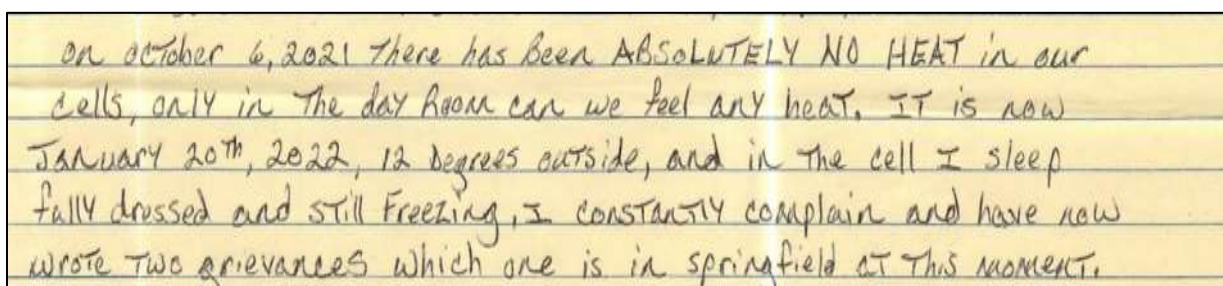 on October 6, 2021 There has Been ABSOLUTELY NO HEAT in our
cells, only in The day Room can we feel any heat. IT is now
January 20th, 2022, 12 Degrees outside, and in The cell I sleep
fully dressed and still Freezing, I constantly complain and have now
wrote Two grievances which one is in springfield at This moment.